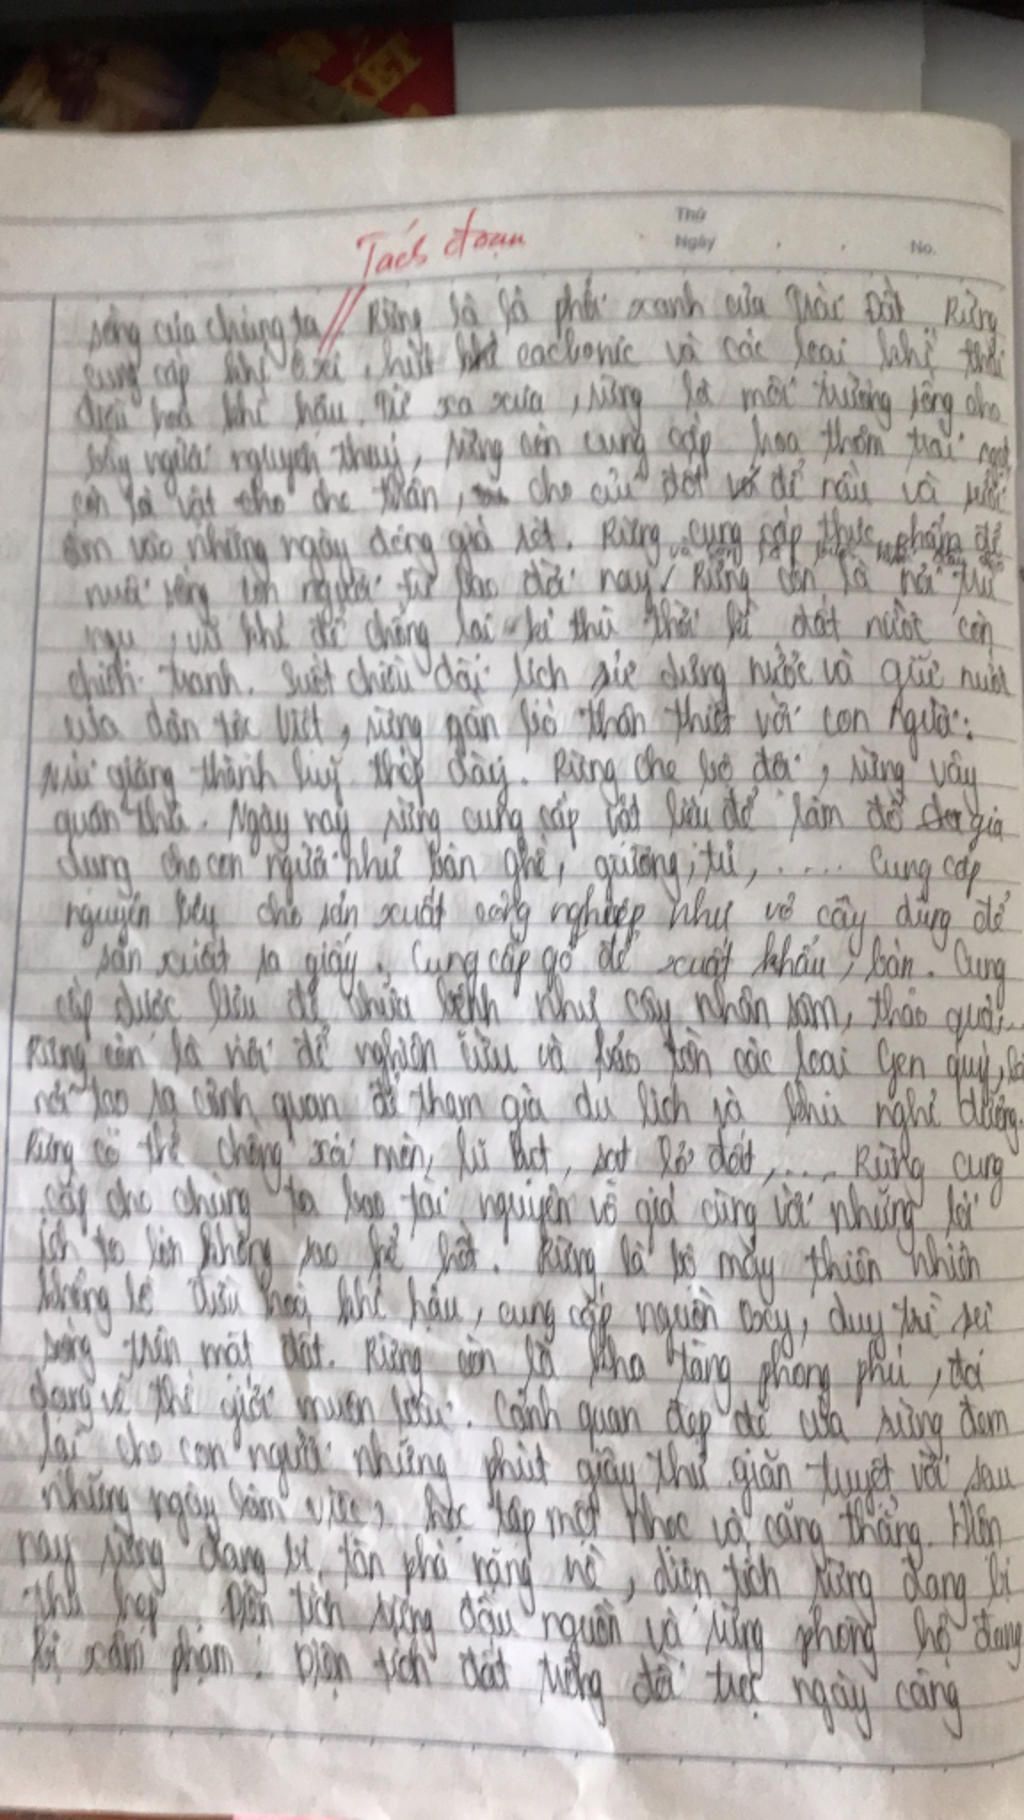 ẾT
Thứ
Ngày No.
Tách đoạn
sống của chúng ta // Rừng là lá phổi xanh của Trái Đất Rừng
cung cấp khí ôxi, hút cacbonic và các loại khí thải
điều hoà khí hậu. Từ xa xưa, rừng là môi trường sống cho
bầy người nguyên thuỷ, rừng còn cung cấp hoa thơm trái ngọt
còn là vật che thân, cho củi đốt để nấu và sưởi
ấm vào những ngày đông giá rét. Rừng cung cấp thực phẩm để
nuôi sống con người từ bao đời nay. Rừng còn là nơi trú
ngụ, vũ khí để chống lại kẻ thù thời kì đất nước còn
chiến tranh. Suốt chiều dài lịch sử dựng nước và giữ nước
của dân tộc Việt, rừng gắn bó thân thiết với con người:
Núi giăng thành luỹ thép dày. Rừng che bộ đội, rừng vây
quân thù. Ngày nay rừng cung cấp vật liệu để làm đồ gia
dụng cho con người như bàn ghế, giường, tủ, ..... Cung cấp
nguyên liệu cho sản xuất công nghiệp như vỏ cây dùng để
sản xuất ra giấy. Cung cấp gỗ để xuất khẩu, bán. Cung
cấp dược liệu để chữa bệnh như cây nhân sâm, thảo quả...
Rừng còn là nơi để nghiên cứu và bảo tồn các loại gen quý, là
nơi tạo ra cảnh quan để tham gia du lịch và khu nghỉ dưỡng.
Rừng có thể chống xói mòn, lũ lụt, sạt lở đất, .... Rừng cung
cấp cho chúng ta bao tài nguyên vô giá cùng với những lợi
ích to lớn không sao kể hết. Rừng là bộ máy thiên nhiên
khổng lồ điều hoà khí hậu, cung cấp nguồn oxy, duy trì sự
sống trên mặt đất. Rừng còn là kho tàng phong phú, đa
dạng về thế giới muôn loài. Cảnh quan đẹp đẽ của rừng đem
lại cho con người những phút giây thư giãn tuyệt vời sau
những ngày làm việc, học tập mệt nhọc và căng thẳng. Hiện
nay rừng đang bị tàn phá nặng nề, diện tích rừng đang bị
thu hẹp. Diện tích rừng đầu nguồn và rừng phòng hộ đang
bị xâm phạm. Diện tích đất trống đồi trọc ngày càng